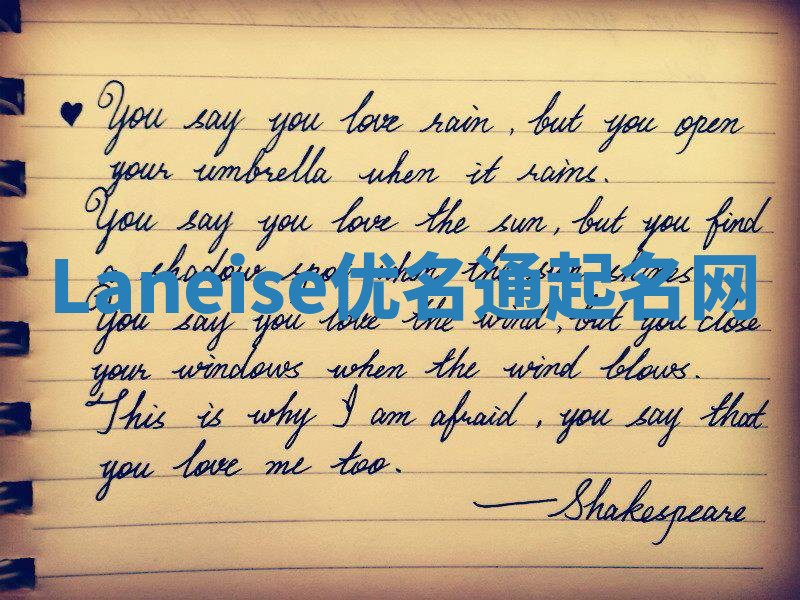 ♥ You say you love rain, but you open
your umbrella when it rains.
You say you love the sun, but you find
a shadow spot when the sun shines
Laneise优名通起名网
You say you love the wind, but you close
your windows when the wind blows.
This is why I am afraid, you say that
you love me too.
—Shakespeare